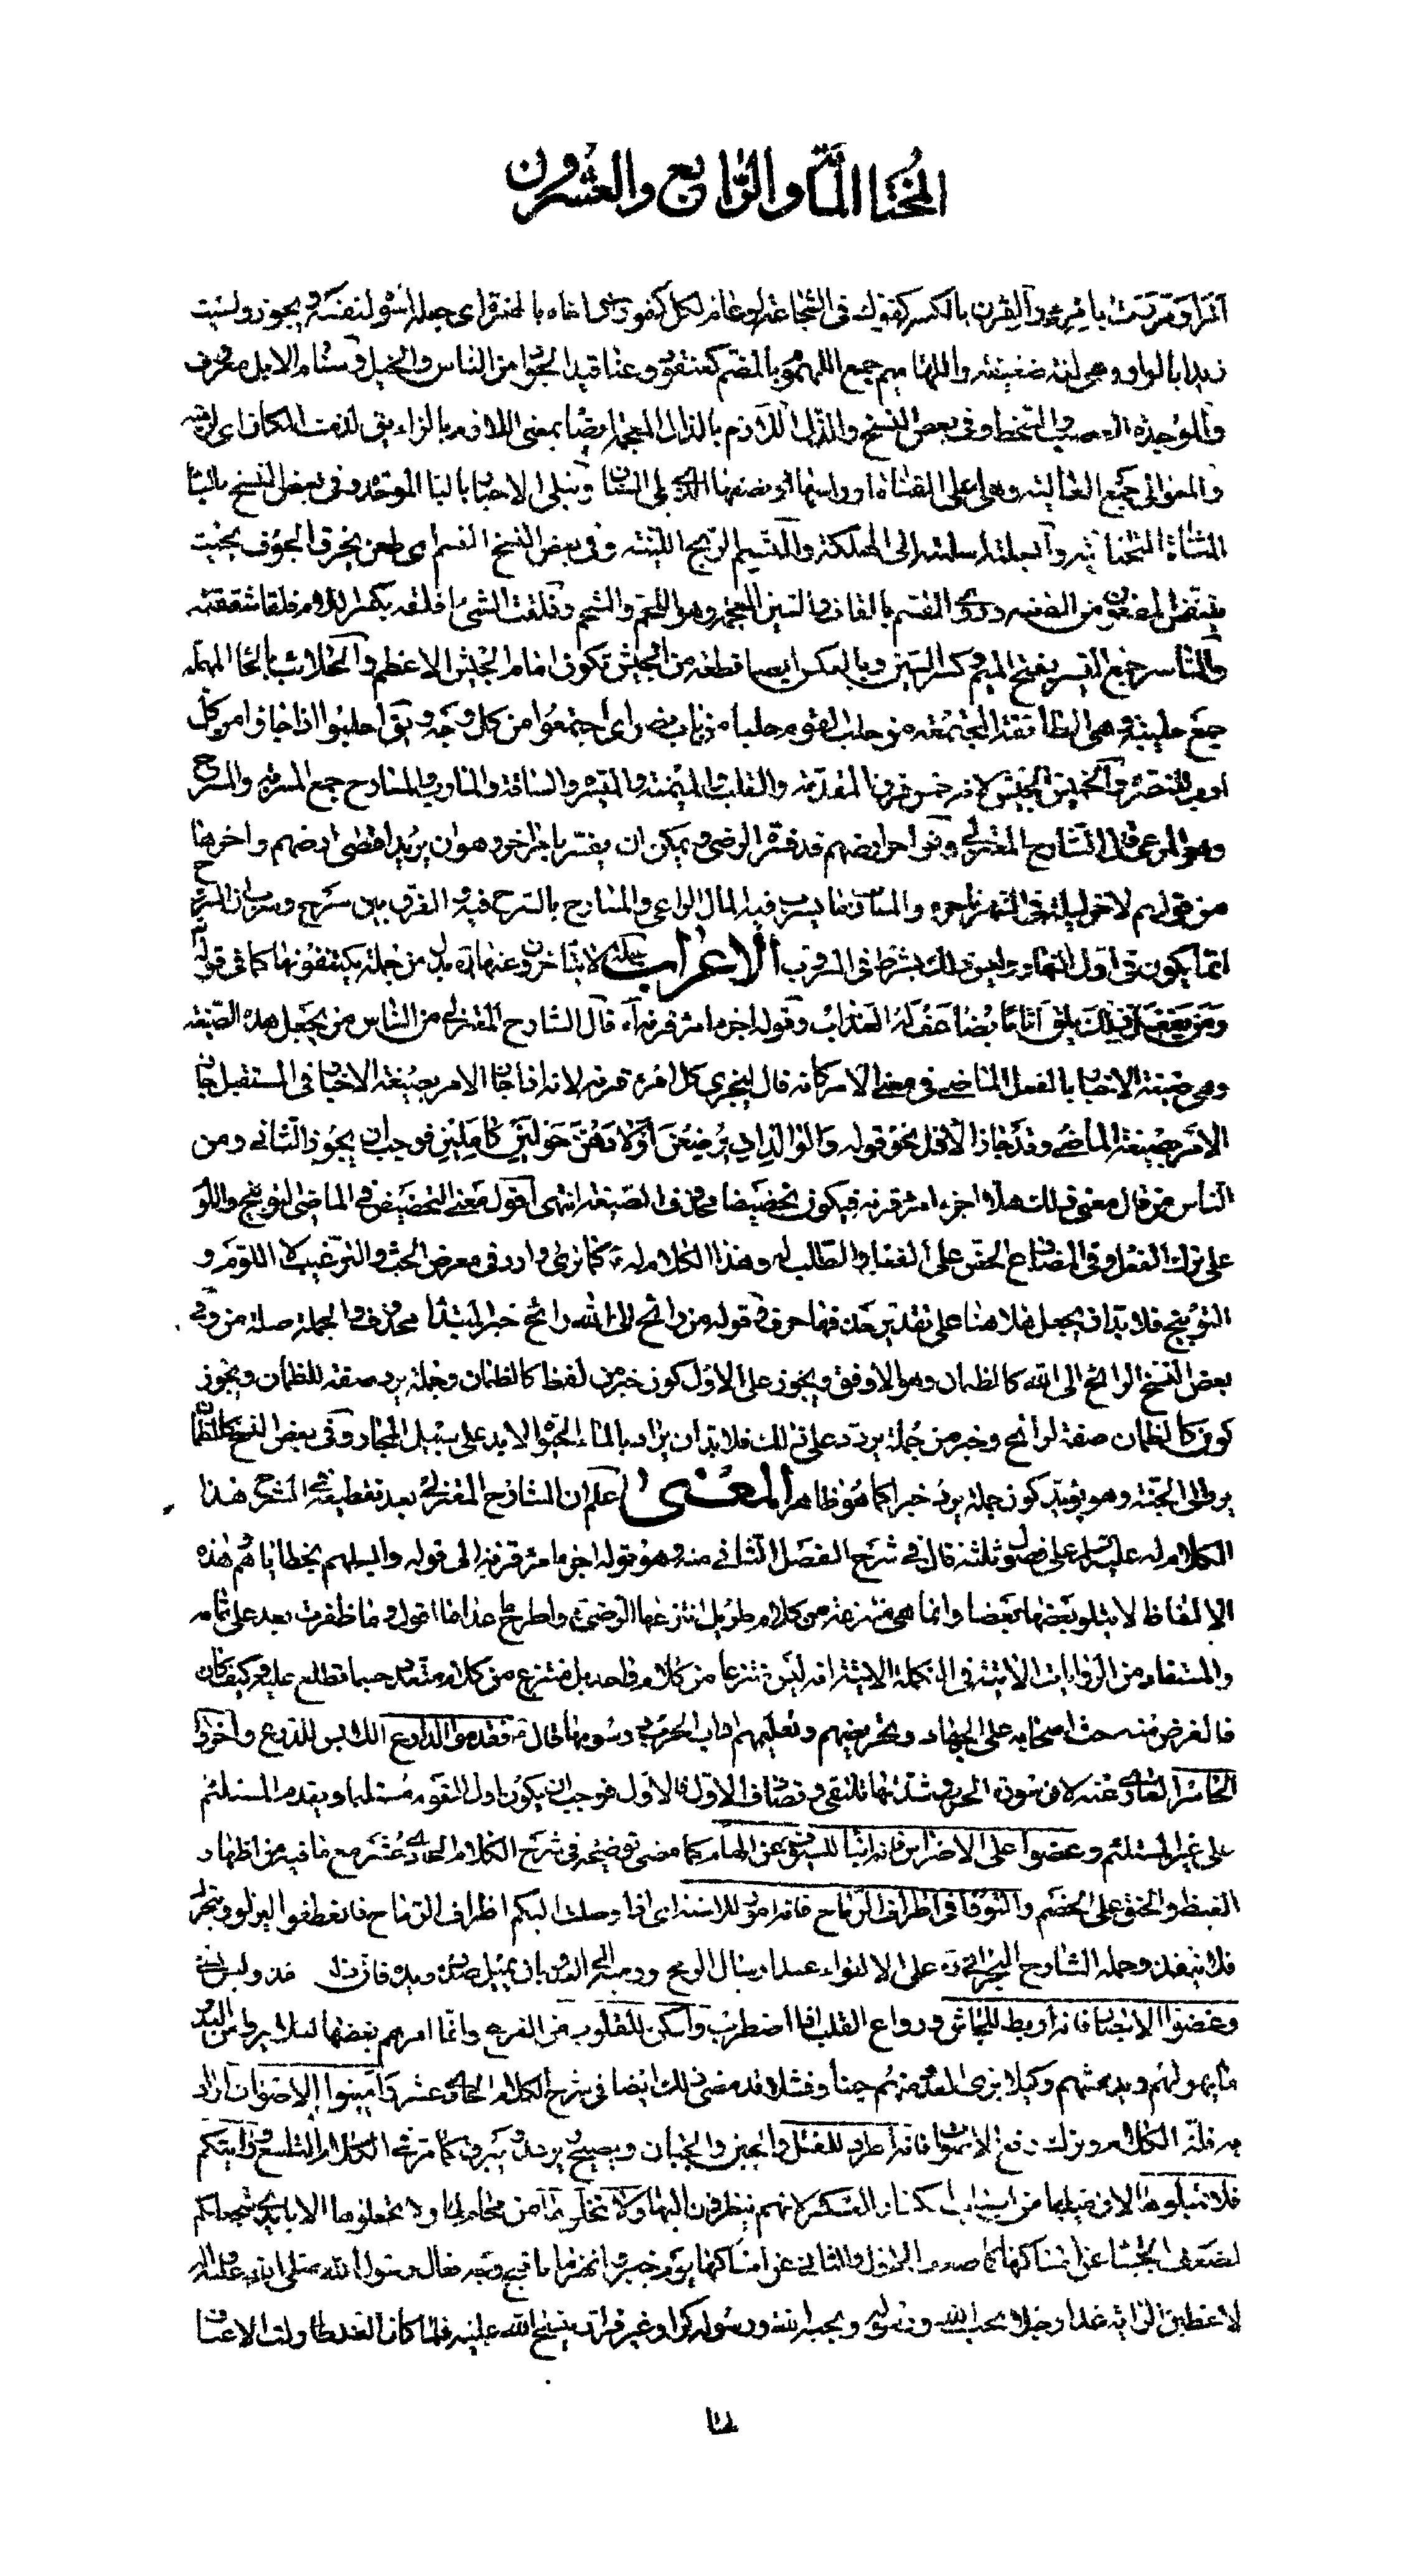 المختار المأة والرابع والعشرون
امراة وقربت بامرءة والقرن بالكسر كفوك في الشجاعة او عام لكل كفو و اسى اخاه بالهمزة اى جعله اسوة لنفسه ويجوز واسيت
زيدا بالواو وهي لغة ضعيفة واللهاميم جمع اللهموم بالضم كعنقود وعناقيد الجواد من الناس والخيل و سنام الابل معروف
والموجدة الغضب والسخط وفى بعض النسخ والذل اللاذم بالذال المعجمة ايضا بمعنى اللازم بالزاء يق لذمت المكان اى لزمته
والعوالى جمع العالية وهي اعلى القناة او راسها او نصفها الذى يلى السنان و تبلى الاخبار بالباء الموحدة وفى بعض النسخ بالياء
المثناة التحتانية وابسلته اسلمته الى الهلكة والنسيم الريح اللينة وفى بعض النسخ القسم اى طعن يخرق الجوف بحيث
والمناسر جمع المنسر بفتح الميم وكسر السين وبالعكس ايضا قطعة من الجيش تكون امام الجيش الاعظم والحلائب بالحاء المهملة
جمع حليبة وهي الطائفة المجتمعة من حلب القوم حلبا من باب نصر اى اجتمعوا من كل وجه ويق احلبوا اذا جاؤا من كل
اوب للنصرة والخميس الجيش لانه خمس فرق المقدمة والقلب والميمنة والميسرة والساقة والمسارب والمسارح جمع المسرب والمسرح
وهو المرعى قال الشارح المعتزلي ونواحر ارضهم قد فسره الرضى ويمكن ان يفسر بامر اخر وهو ان يريد اقصى ارضهم واخرها
من قولهم لاخر ليلة فى الشهر ناحرة والمسارب ما يسرب فيه المال الراعى والمسارح ما يسرح فيه والفرق بين سرح وسرب ان السرح
انما يكون فى اول النهار وليس ذلك بشرط فى السروب الاعراب جملة لا يتاخرون عنها اه بدل من جملة يكتنفونها كما فى قوله
ومن يفعل ذلك يلق اثاما يضاعف له العذاب وقوله اجزء امرء قرنه اه قال الشارح المعتزلي من الناس من يجعل هذه الصيغة
وهي صيغة الاخبار بالفعل الماضي في معنى الامر كانه قال ليجزى كل امرء قرنه لانه اذا جاز الامر بصيغة الاخبار فى المستقبل جاز
الامر بصيغة الماضي وقد جاز الاول نحو قوله والوالدات يرضعن اولادهن حولين كاملين فوجب ان يجوز الثاني ومن
الناس من قال معنى ذلك هلا اجزء امرء قرنه فيكون تحضيضا محذوف الصيغة انتهى اقول معنى التحضيض فى الماضى التوبيخ واللوم
على ترك الفعل وفى المضارع الحض على الفعل والطلب له وهذا الكلام له ع كما ترى وارد فى معرض الحث والترغيب لا اللوم و
التوبيخ فلابد ان يجعل هلا هنا على تقدير حذفها حرف وقوله من رائح الى الله رائح خبر لمبتدا محذوف والجملة صلة من وفى
بعض النسخ الرائح الى الله كالظمان وهو الاوفق ويجوز على الاول كون خبر من لفظ كالظمان وجملة يرد صفة للظمان ويجوز
كون كالظمان صفة لرائح وخبر من جملة يرد وعلى ذلك فلابد ان يراد بالماء الحيوة الابد على سبيل المجاز وفى بعض النسخ كالظمان
يرد الى الجنة وهو يؤيد كون جملة يرد خبرا كما هو ظاهر المعنى اعلم ان الشارح المعتزلي بعد تقطيعه فى الشرح هذا
الكلام له عليه السلام على فصول ثلثة قال في شرح الفصل الثاني منه وهو قوله اجزء امرء قرنه الى قوله وابسلهم بخطاياهم هذه
الالفاظ لا يتلو بعضها بعضا وانما هي منتزعة من كلام طويل انتزعها الرضى ره واطرح ما عداها اقول و ما ظفرت بعد على تمامه
والمستفاد من الروايات الاتية فى التكملة الاتية انه ليس منتزعا من كلام واحد بل منتزع من كلام متعدد حسبما تطلع عليه وكيف كان
فالغرض منه حث اصحابه على الجهاد وتحريضهم وتعليمهم اداب الحرب و رسومها قال ع فقدموا الدارع اللابس للدرع واخروا
الحاسر العارى عنه لان سورة الحرب وشدتها تلتقى وتصادف الاول فالاول فوجب ان يكون اول القوم مستلئما ويقدم المستلئم
على غير المستلئم وعضوا على الاضراس فانه انبا للسيوف عن الهام كما مضى توضيحه فى شرح الكلام الحادى عشر مع ما فيه من اظهار
الغيظ والحنق على الخصم والتووا فى اطراف الرماح فانه امور للاسنة اى اذا وصلت اليكم اطراف الرماح فانعطفوا ليزلق ويتحرك
فلا ينفذ وحمله الشارح البحراني ره على الالتواء عند ارسال الرمح
وغضوا الابصار فانه اربط للجاش و رواع القلب اذا اضطرب واسكن للقلوب من الفزع وانما امرهم بغضها لئلا يروا من العدو
ما يهولهم ويدهشهم وكيلا يرى العدو منهم جبنا وفشلا قد مضى ذلك ايضا فى شرح الكلام الحادى عشر واميتوا الاصوات اراد
به قلة الكلام وترك رفع الاصوات فانه اطرد للفشل والجبن والجبان ويصيح يرعد ويبرق كما مر في الكلام التاسع ورايتكم
فلا تميلوها لان ميلها من اسباب انكسار العسكر لانهم ينظرون اليها ولا تخلوها من محام لها ولا تجعلوها الا بايدى شجعانكم
لضعف الجبناء عن امساكها كما صدر من الاول والثاني عن امساكها يوم خيبر وانهزما باقبح وجه فقال رسول الله صلى الله عليه واله
لاعطين الراية غدا رجلا يحب الله ورسوله ويحبه الله ورسوله كرارا غير فرار يفتح الله عليه فلما كان الغد تطاولت الاعناق